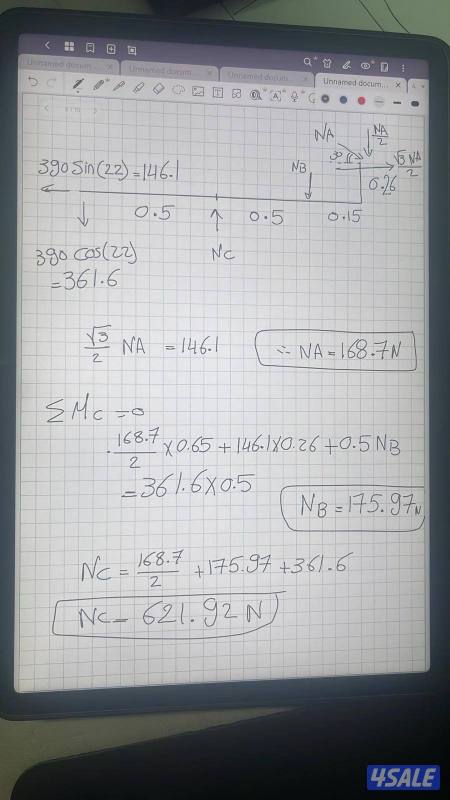 Unnamed docum...
Unnamed docum...
Unnamed docum...
Unnamed docum...
NA
NA/2
30
√3 NA/2
NB
0.26
390 Sin(22) = 146.1
0.5
0.5
0.15
390 cos(22)
= 361.6
NC
√3/2 NA = 146.1
∴ NA = 168.7 N
∑ Mc = 0
168.7/2 × 0.65 + 146.1 × 0.26 + 0.5 NB
= 361.6 × 0.5
NB = 175.97 N
NC = 168.7/2 + 175.97 + 361.6
NC = 621.92 N
4SALE